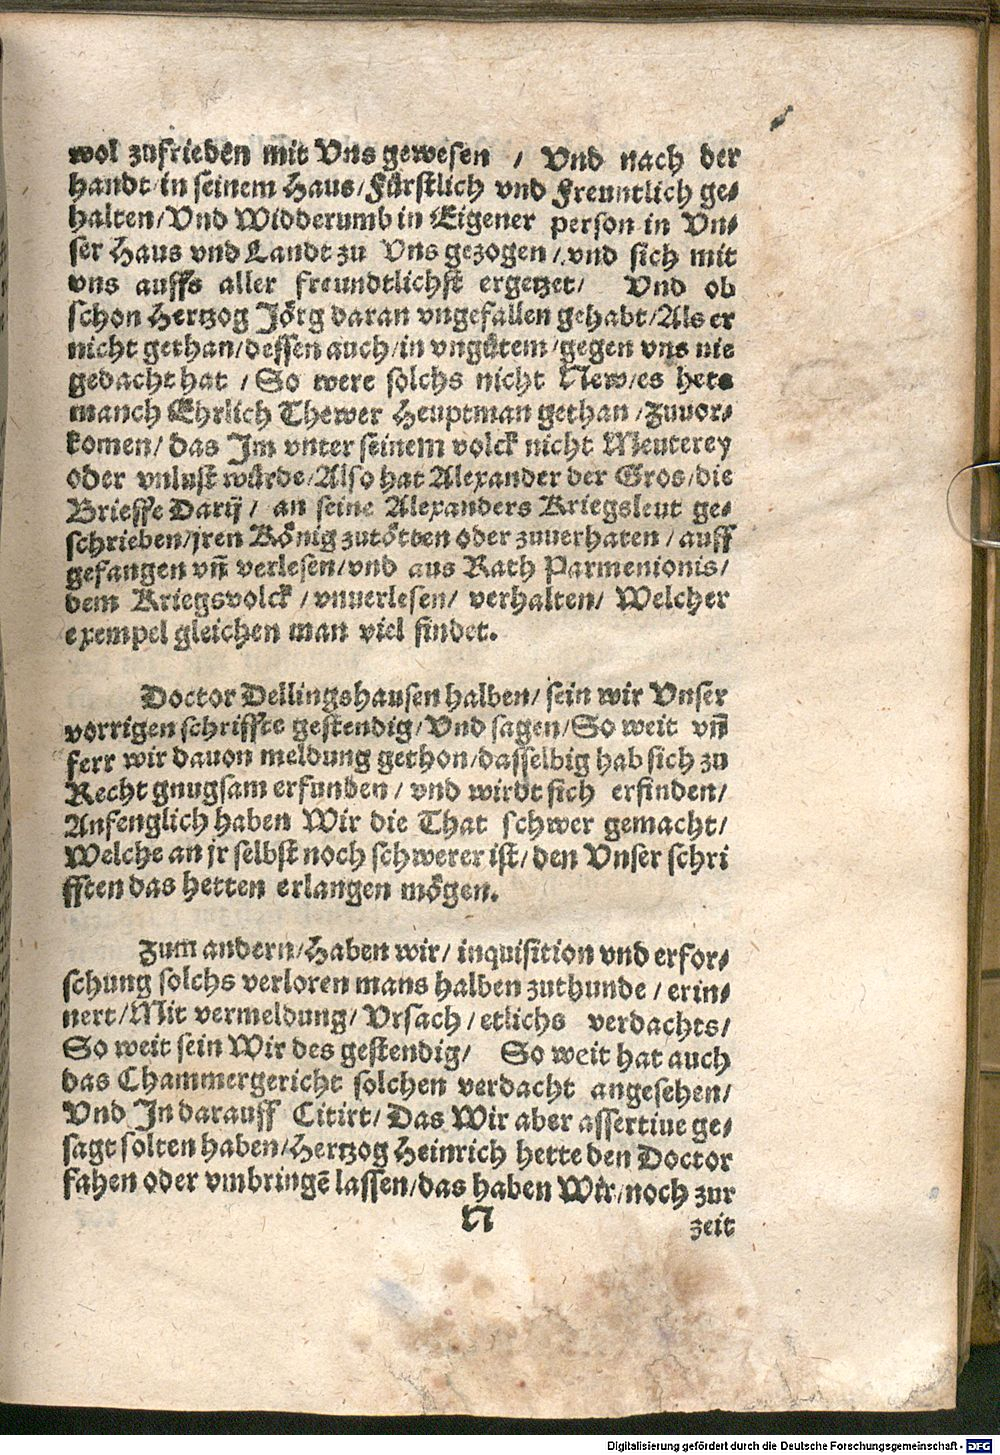 wol zufrieden mit Vns gewesen / Vnd nach der
handt/in seinem Haus/Fürstlich vnd Freuntlich ge⸗
halten/Vnd Widderumb in Eigener person in Vn⸗
ser Haus vnd Landt zu Vns gezogen/vnd sich mit
vns auffs aller freundtlichst ergetzet/ Vnd ob
schon Hertzog Jörg daran vngefallen gehabt/Als er
nicht gethan/dessen auch/in vngůtem/gegen vns nie
gedacht hat / So were solchs nicht New/es hete
manch Ehrlich Thewer Heuptman gethan /zuuor⸗
komen/ das Jm vnter seinem volck nicht Meuterey
oder vnlust wůrde/Also hat Alexander der Gros/die
Brieffe Darij/ an seine Alexanders Kriegsleut ge⸗
schrieben/jren König zutötten oder zuuerhaten / auff
gefangen vñ verlesen/vnd aus Rath Parmenionis/
dem Kriegsvolck /vnuerlesen/ verhalten/ Welcher
exempel gleichen man viel findet.
Doctor Dellingshausen halben/ sein wir Vnser
vorrigen schriffte gestendig/Vnd sagen/So weit vñ
ferr wir dauon meldung gethon/dasselbig hab sich zu
Recht gnugsam erfunden / vnd wirdt sich erfinden/
Anfenglich haben Wir die That schwer gemacht/
Welche an jr selbst noch schwerer ist/ den Vnser schri
fften das hetten erlangen mögen.
Zum andern/Haben wir/ inquisition vnd erfor⸗
schung solchs verloren mans halben zuthunde / erin⸗
nert/Mit vermeldung/ Vrsach /etlichs verdachts/
So weit sein Wir des gestendig/ So weit hat auch
das Chammergericht solchen verdacht angesehen/
Vnd Jn darauff Citirt/ Das Wir aber assertiue ge⸗
sagt solten haben/Hertzog Heinrich hette den Doctor
fahen oder vmbringẽ lassen/das haben Wir/noch zur
N
zeit
Digitalisierung gefördert durch die Deutsche Forschungsgemeinschaft - DFG